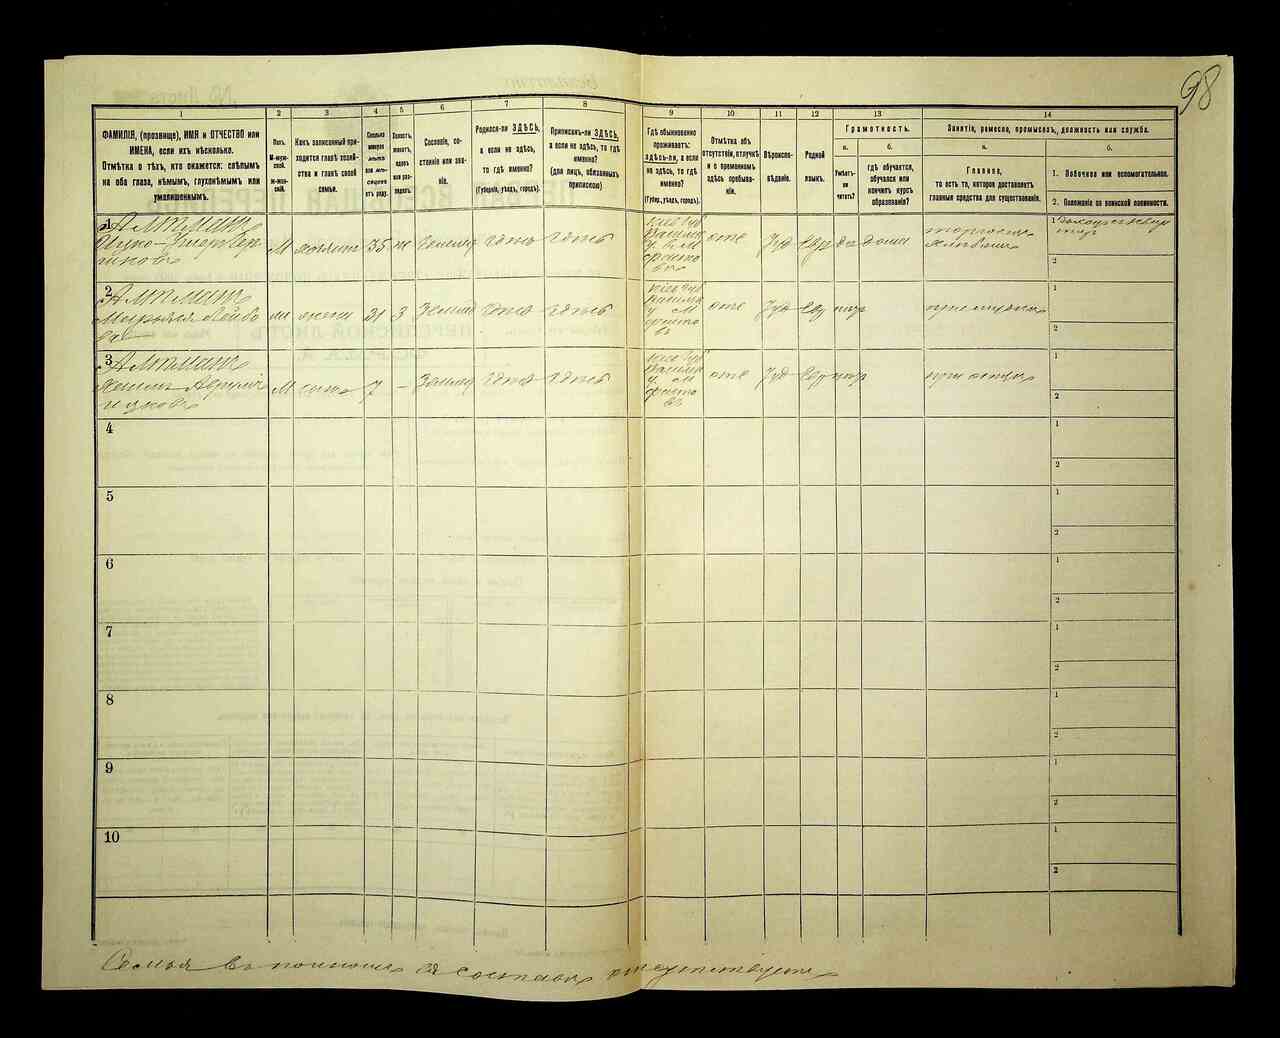 98
1
2
3
4
5
6
7
8
9
10
11
12
13
14
ФАМИЛІЯ, (прозвище), ИМЯ и ОТЧЕСТВО или
ИМЕНА, если ихъ нѣсколько.
Отмѣтка о тѣхъ, кто окажется: слѣпымъ
на оба глаза, нѣмымъ, глухонѣмымъ или
умалишеннымъ.
Полъ.
М-муж-
ской.
ж-жен-
скій.
Какъ записанный при-
ходится главѣ хозяй-
ства и главѣ своей
семьи.
Сколько
минуло
лѣтъ
или мѣ-
сяцевъ
отъ роду.
Холостъ,
женатъ,
вдовъ
или раз-
веденъ.
Сословіе, со-
стояніе или зва-
ніе.
Родился-ли ЗДѢСЬ,
а если не здѣсь,
то гдѣ именно?
(Губернія, уѣздъ, городъ).
Приписанъ-ли ЗДѢСЬ,
а если не здѣсь, то гдѣ
именно?
(для лицъ, обязанныхъ
припискою)
Гдѣ обыкновенно
проживаетъ:
здѣсь-ли, а если
не здѣсь, то гдѣ
именно?
(Губер., уѣздъ, городъ).
Отмѣтка объ
отсутствіи, отлучкѣ
и о временномъ
здѣсь пребыва-
ніи.
Вѣроиспо-
вѣданіе.
Родной
языкъ.
Грамотность.
а.
б.
Умѣетъ-
ли
читать?
гдѣ обучается,
обучался или
кончилъ курсъ
образованія?
Занятіе, ремесло, промыселъ, должность или служба.
а.
б.
Главное,
то есть то, которое доставляетъ
главныя средства для существованія.
1. Побочное или вспомогательное.
2. Положеніе по воинской повинности.
1
Альтманъ
М
хозяинъ
35
ж
здѣсь
здѣсь
отс
Іуд
Евр
да
дома
1
2
2
Альтманъ
Лейбо
ж
жена
31
з
здѣсь
здѣсь
отс
Іуд
Евр
при мужѣ
1
2
3
Альтманъ
М
сынъ
7
-
здѣсь
здѣсь
отс
Іуд
Евр
при отцѣ
1
2
4
1
2
5
1
2
6
1
2
7
1
2
8
1
2
9
1
2
10
1
2
Семья въ полномъ ея составѣ отсутствуетъ